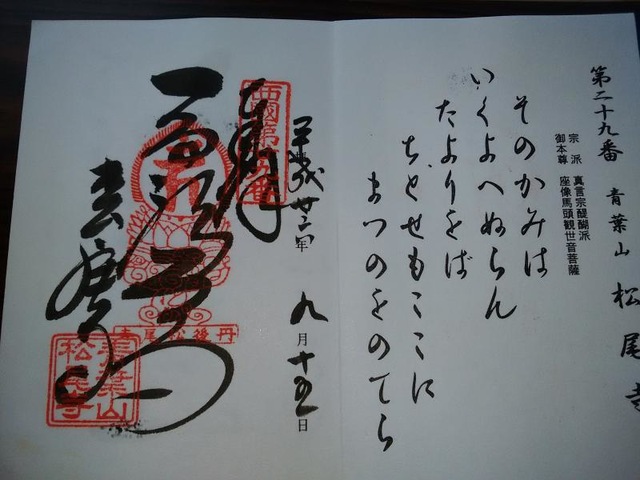 第二十九番 青葉山 松尾寺
宗派 真言宗醍醐派
御本尊 座像馬頭観世音菩薩
そのかみは
いくよへぬらん
たよりをば
ちとせもここに
まつのをのてら
平成廿二年 九月十五日
西國第廿九番
奉拝
丹後松尾寺
青葉山
松尾寺